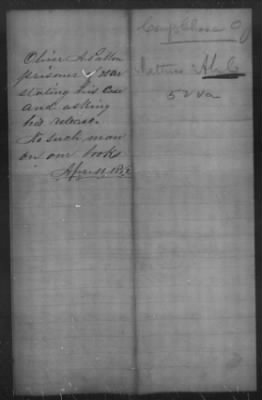 Oliver A. Patton
prisoner of war
stating his case
and asking
his release.
No such man
on our books
Camp Chase O
52 Va